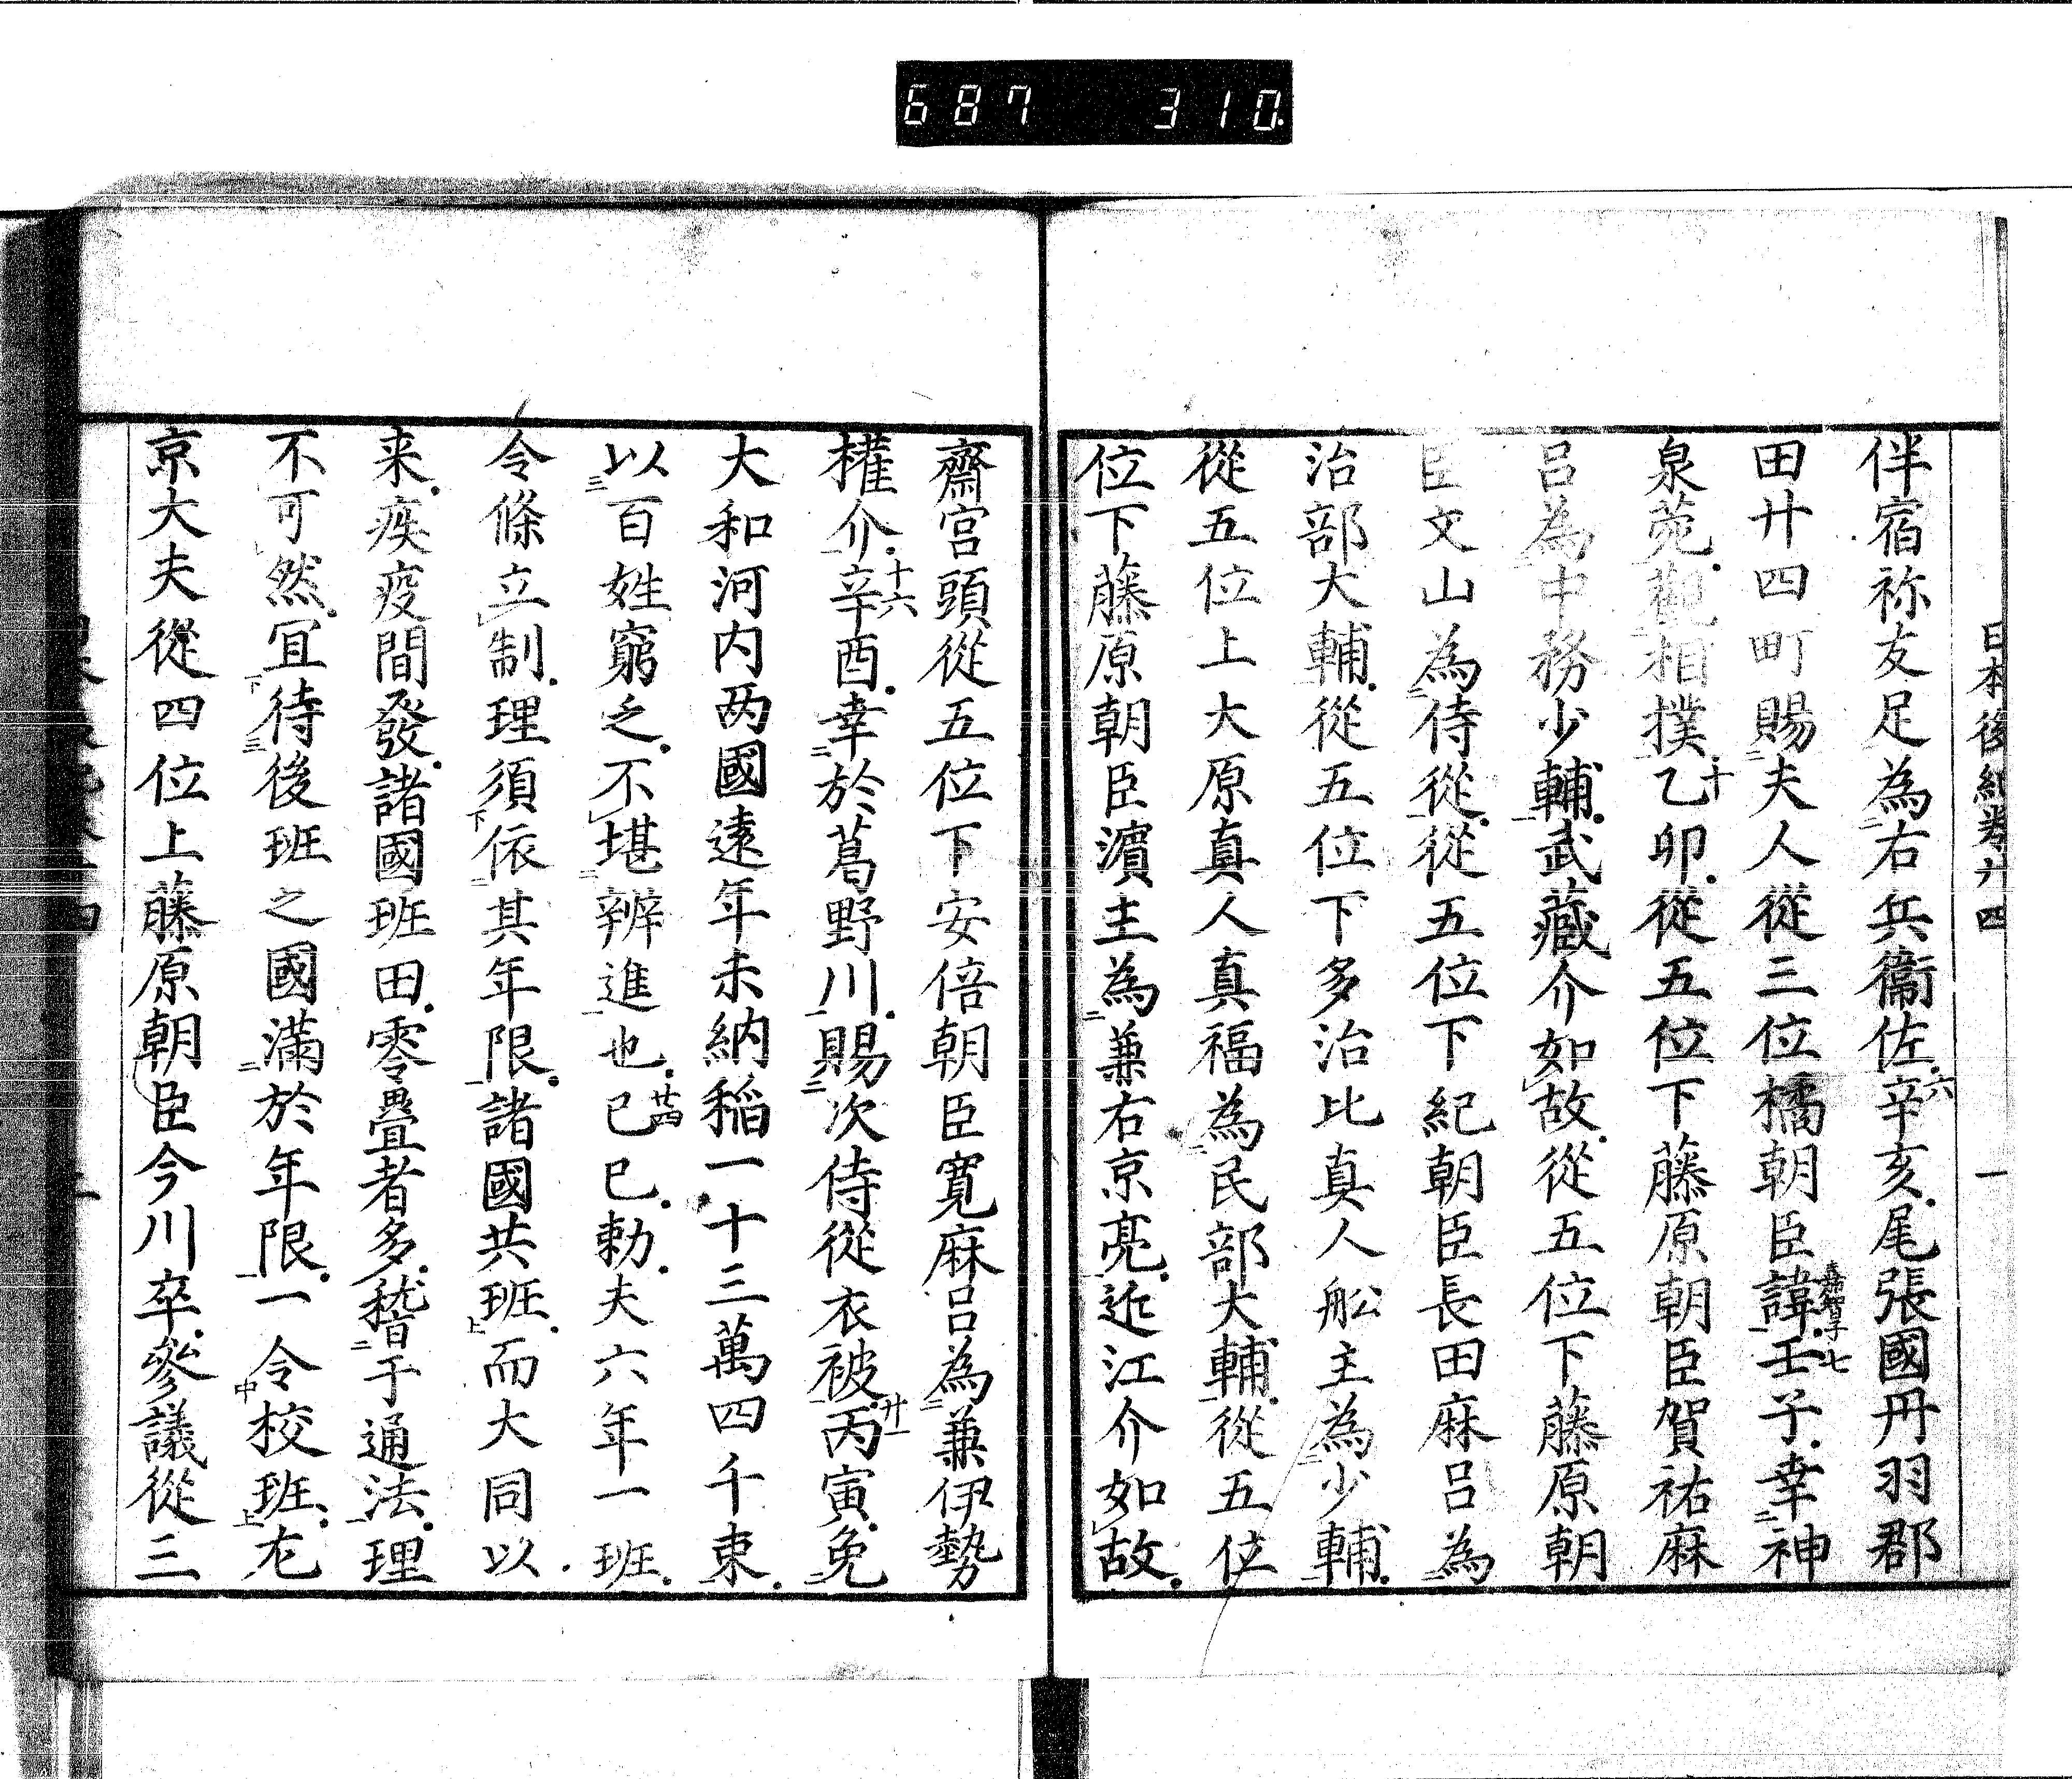 687 310
日本後紀卷廾四 一
伴宿祢友足為右兵衞佐辛亥尾張國丹羽郡
田廾四町賜夫人從三位橘朝臣諱壬子幸神
泉苑觀相撲乙卯從五位下藤原朝臣賀祐麻
呂為中務少輔武藏介如故從五位下藤原朝
臣文山為侍從從五位下紀朝臣長田麻呂為
治部大輔從五位下多治比真人舩主為少輔
從五位上大原真人真福為民部大輔從五位
位下藤原朝臣濵主為兼右京亮近江介如故
齋宮頭從五位下安倍朝臣寛麻呂為兼伊勢
權介辛酉幸於葛野川賜次侍從衣被丙寅免
大和河内两國遠年未納稲一十三萬四千束
以百姓窮乏不堪辨進也己巳勅夫六年一班
令條立制理須依其年限諸國共班而大同以
来疾疫間發諸國班田零疊者多稽于通法理
不可然冝待後班之國滿於年限一令校班尤
京大夫從四位上藤原朝臣今川卒參議從三
六
七
十
十六
廾一
廿四